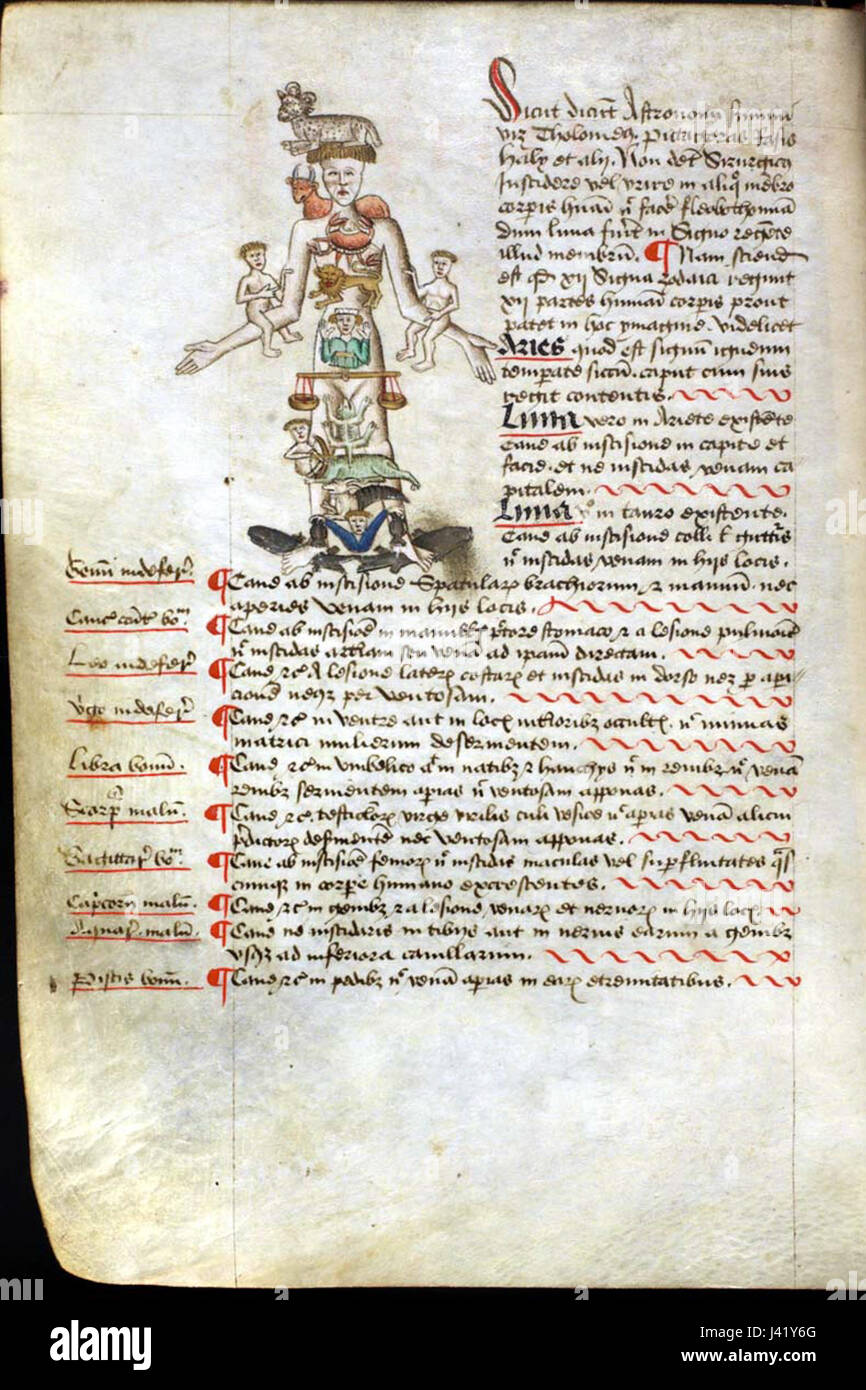 Sicut dicunt Astronomi
viz Tholomeus Pictagoras
haly et alij. Non debet Sirurgicus
Inscidere vel urere in aliquo membro
corporis humani nec facere fleobothomiam
dum luna fuerit in Signo regente
illud membrum. ¶ Nam sciend
est quod xij Signa zodiaca regunt
xij partes humani corporis prout
patet in hoc ymagine. videlicet
Aries quod est signum igneum
temperate siccum. caput cum suis
regit contentis.
Luna vero in Ariete existente
Cave ab inscisione in capite et
facie. et ne inscidas venam ca
pitalem.
Luna vero in tauro existente.
Cave ab inscisione colli et gutturis
nec inscidas venam in hijs locis.
Gemini indefer
¶Cave ab inscisione Spatularum brachiorum et manuum. nec
aperies venam in hijs locis.
¶Cave ab inscisione in pectore stomaco et a lesione pulmonis
nec inscidas artiam seu venam ad ipsam directam.
Leo indefer
¶Cave etc A lesione laterum costarum et inscidas in dorso nec per aper
cionem neque per ventosam.
Virgo indefer
¶Cave etc in ventre aut in locis interioribus occultis. nec
matrici mulierum deservientem.
Libra bonum.
¶Cave etc in umbelico in natibus et hanchys in renibus nec venam
renibus servientem aperias nec ventosam apponas.
Scorpio malum.
¶Cave etc. testiculorum virge virilis culi vesice nec aperias venam alicui
predictorum nec ventosam apponas.
Sagittarius bonum.
¶Cave ab inscisione femorum nec inscidas maculas vel superfluitates
cumque in corpore humano excrescentes.
Capricorn malum.
¶Cave etc in genibus et a lesione venarum et nervorum in hijs locis
Aquarius malum.
¶Cave ne inscidaris in tibijs aut in nervis earum a genibus
usque ad inferiora cavillarum.
Piscis bonum.
¶Cave etc in pedibus nec venam aperias in earum extremitatibus.
alamy
alamy
Image ID: J41Y6G
www.alamy.com